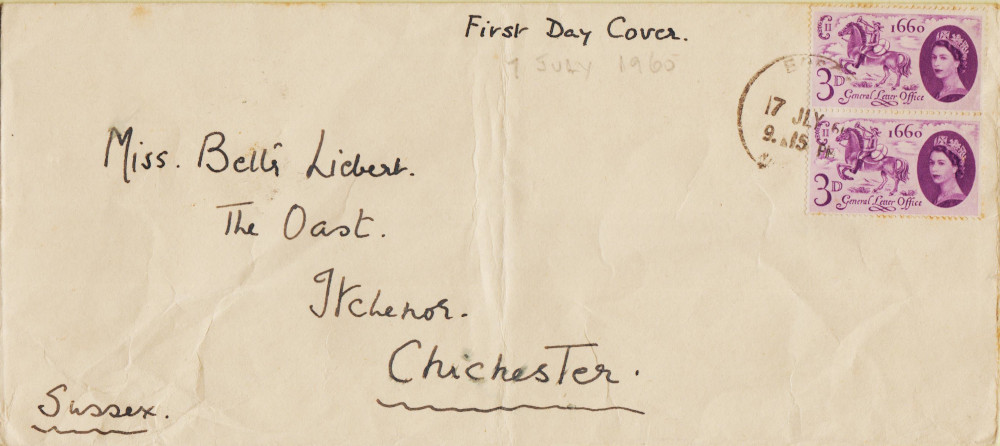 First Day Cover.
7 JULY 1960
Miss. Bell's Liebert.
The Oast.
Itchenor.
Chichester.
Sussex.
17 JLY
9.15
EIIR
1660
3D
General Letter Office
1660
3D
General Letter Office